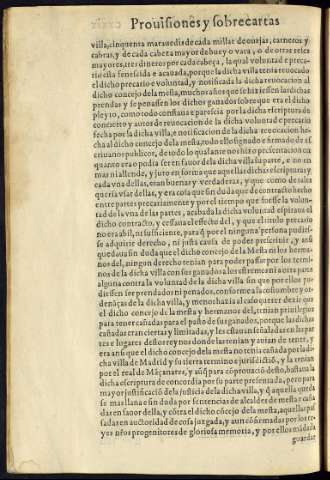 Prouisiones y sobrecartas
villa, cinquenta marauedis de cada millar de ouejas, carneros y
cabras, y de cada cabeza mayor de buey o vaca, o de otras reses
mayores, tres dineros por cada cabeça, la qual voluntad e preca-
rio esta fenescida e acauada, porque la dicha villa tenia reuocado
el dicho precario e voluntad, y notificada la dicha reuocacion al
dicho concejo de la mesta, muchos años que se hiziessen las dichas
prendas y se penassen los dichos ganados sobre que era el dicho
pleyto, como todo constaua e parescia por la dicha escriptura de
concierto y autos de reuocacion de la dicha voluntad e precario
fecha por la dicha villa, e notificacion de la dicha reuocacion he-
cha al dicho concejo de la mesta, todo ello signado e firmado de es
criuanos publicos, de todo lo qual ante nos hizo presentacion en
quanto era o podia ser en fauor dela dicha villa su parte, e no en
mas ni allende, y juro en forma que aquellas dichas escripturas y
cada vna dellas, eran buenas y verdaderas, y que como de tales
queria vsar dellas, y era cosa que sin duda que de contracto hecho
entre partes precariamente y por el tiempo que fuesse la volun-
tad de la vna de las partes, acabada la dicha voluntad espiraua el
dicho contracto, y cessaua el effecto del, y que el titulo precario
no era abil, ni sufficiente, para q por el ninguna persona pudies-
se adquirir derecho, ni justa causa de poder prescriuir, y assi
quedaua sin duda que el dicho concejo de la Mesta ni los herma-
nos del, ningun derecho tenian para poder passar por los termi-
nos de la dicha villa con sus ganados a los estremos ni a otra parte
alguna contra la voluntad de la dicha villa sin que por ellos pu-
diessen ser prendados ni penados, conforme a la costumbre y or-
denãças de la dicha villa, y menos hazia al caso querer dezir que
el dicho concejo de la mesta y hermanos del, tenian priuilegios
para tener cañadas para el passo de sus ganados, porque las dichas
cañadas eran ciertas y limitadas, y les estauan señaladas en las par
tes e lugares de fuero y nos donde las tenian y auian de tener, y
era ansi que el dicho concejo dela mesta no tenia cañada por la di-
cha villa de Madrid y su tierra termino e jurisdictiõ, y la tenian
por el real de Maçanares, y aũq̃ para cõprouaciõ desto, bastaua la
dicha escriptura de concordia por su parte presentada, pero para
mayor justificaciõ dela justicia dela dicha villa, y q̃ aquella queda
se mas llana e sin duda por sentencias de alcaldes de mesta e casa
das en fauor della, y cõtra el dicho cõcejo dela mesta, aquellas pas
sadas en auctoridad de cosa juzgada, y aun cõfirmadas por los re-
yes nr̃os progenitores de gloriosa memoria, y por ellos mãdada
guardar